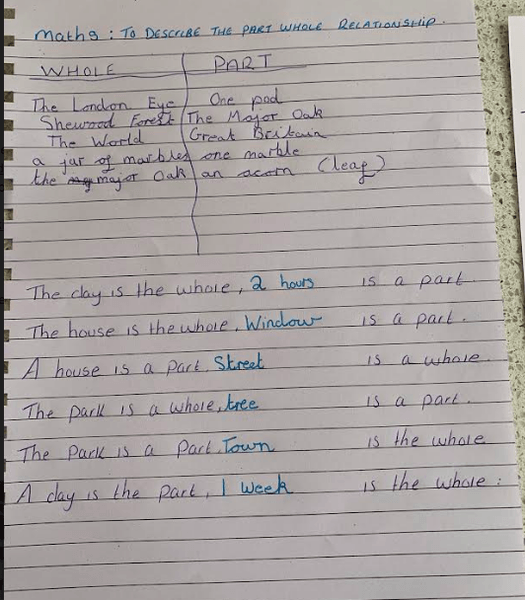 Maths : TO DESCRIBE THE PART WHOLE RELATIONSHIP.
WHOLE PART
The London Eye One pod
Shewood Forest The Major Oak
The World Great Britain
a jar of marbles one marble
the major Oak an acorn (leaf)
The day is the whole, 2 hours is a part.
The house is the whole, Window is a part.
A house is a part, Street is a whole.
The park is a whole, tree is a part.
The Park is a part, Town is the whole
A day is the part, 1 week is the whole.